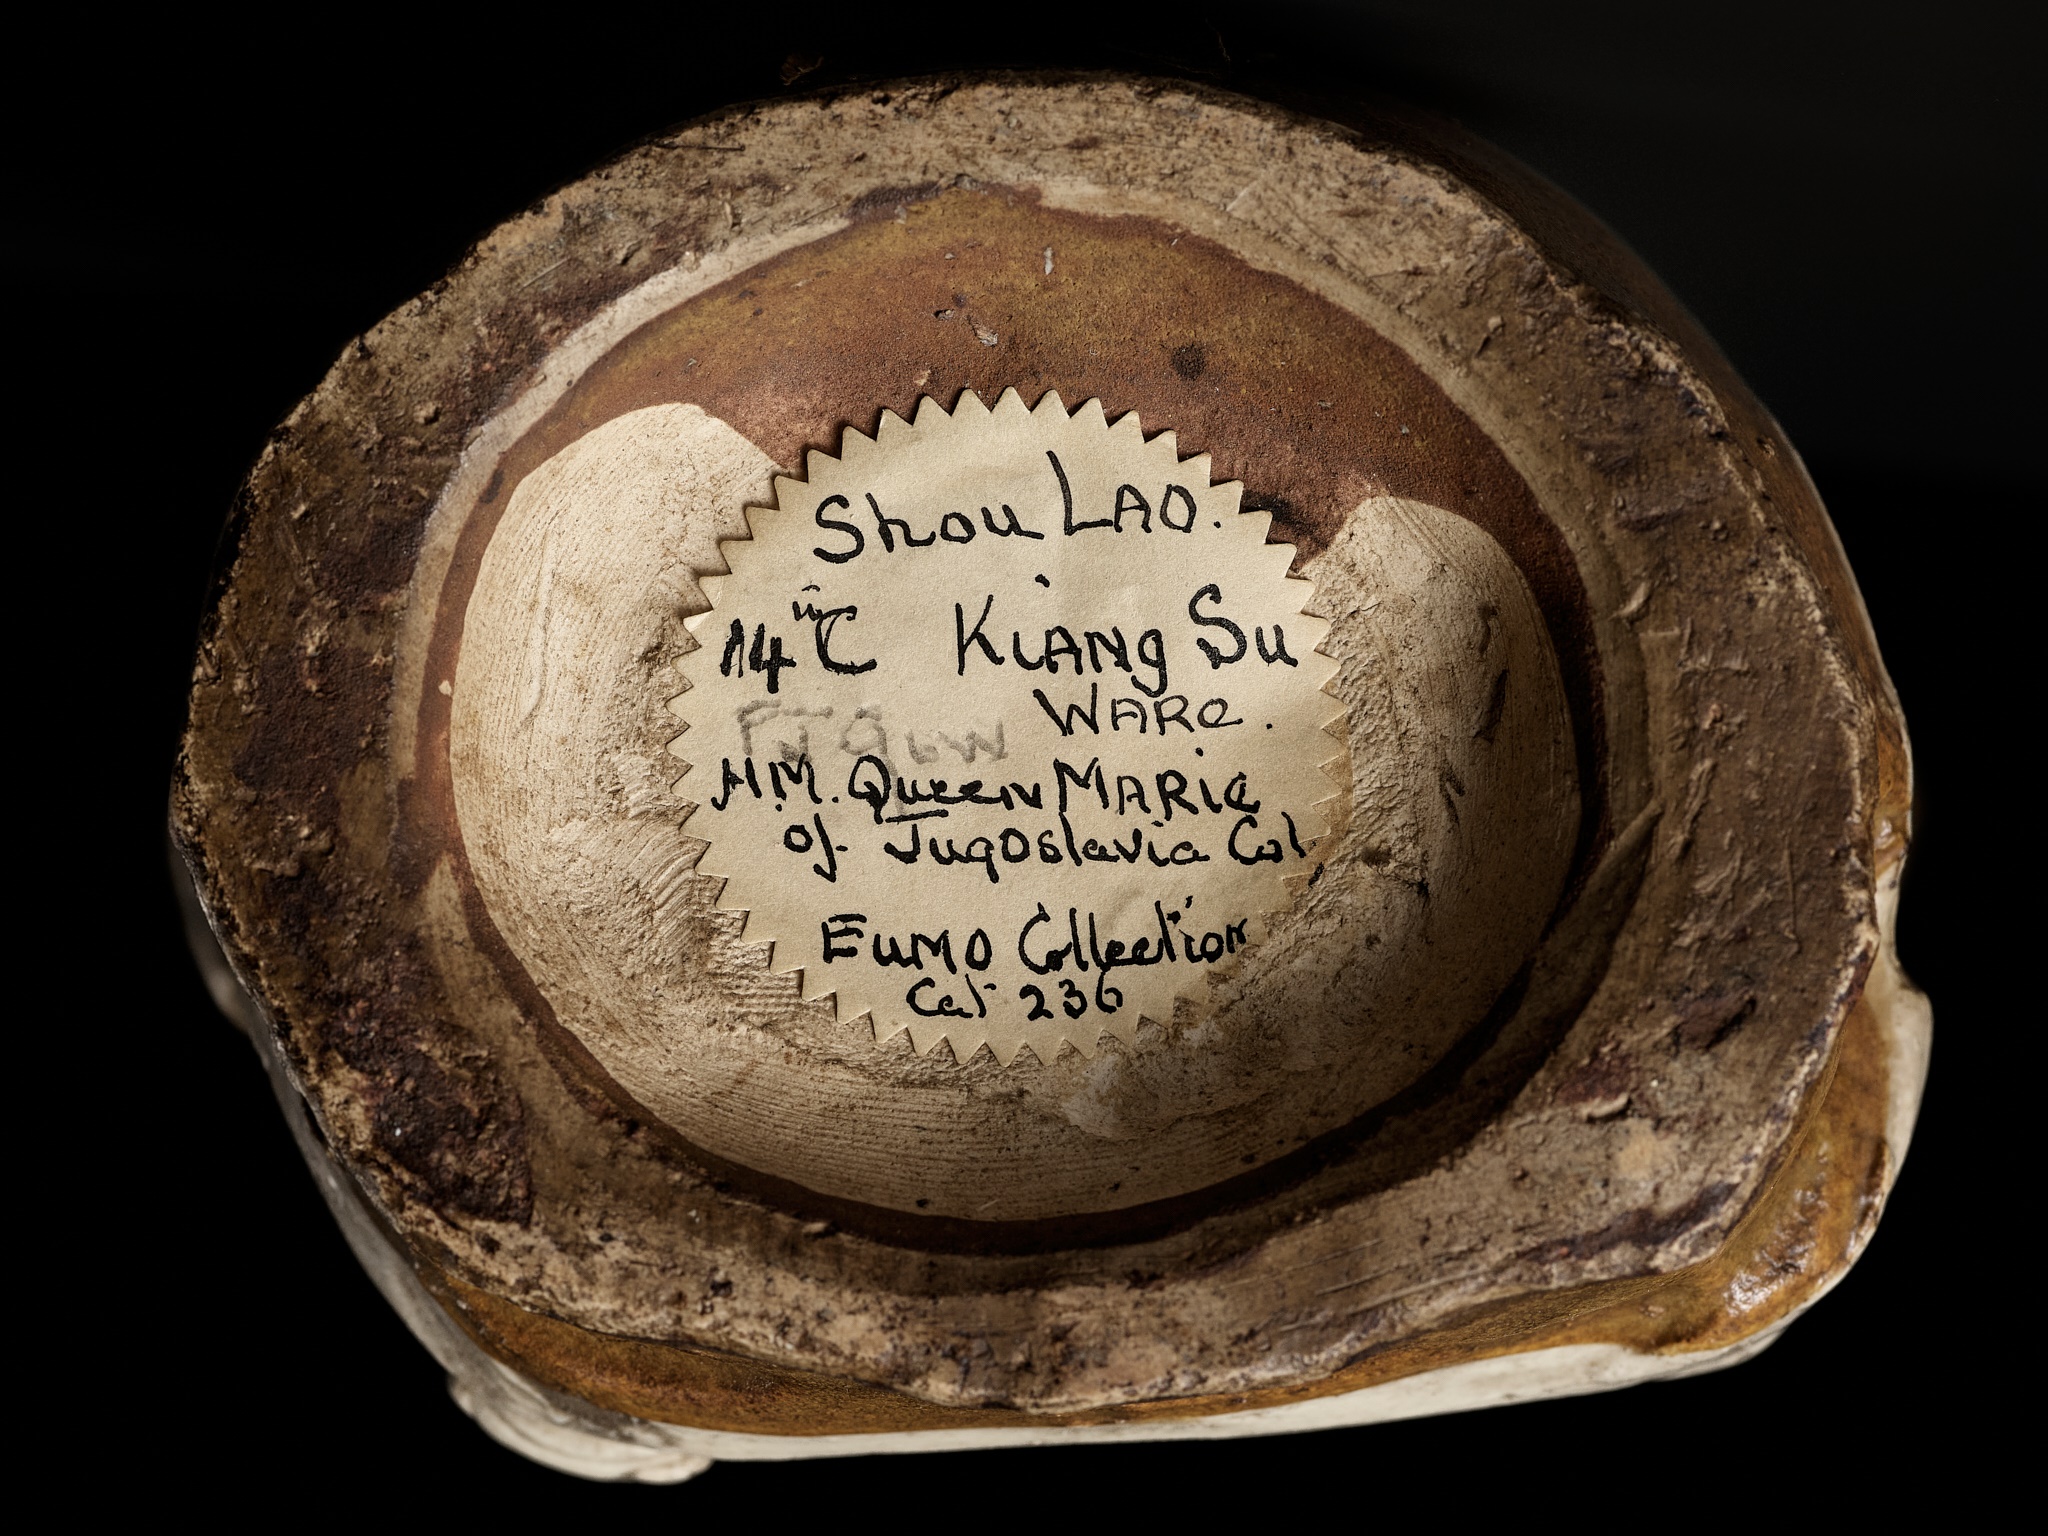 Shou LAO.
14th C KiANg Su
WARe.
H.M. Queen MARie
of Jugoslavia Col.
EuMO Collection
Cat 236